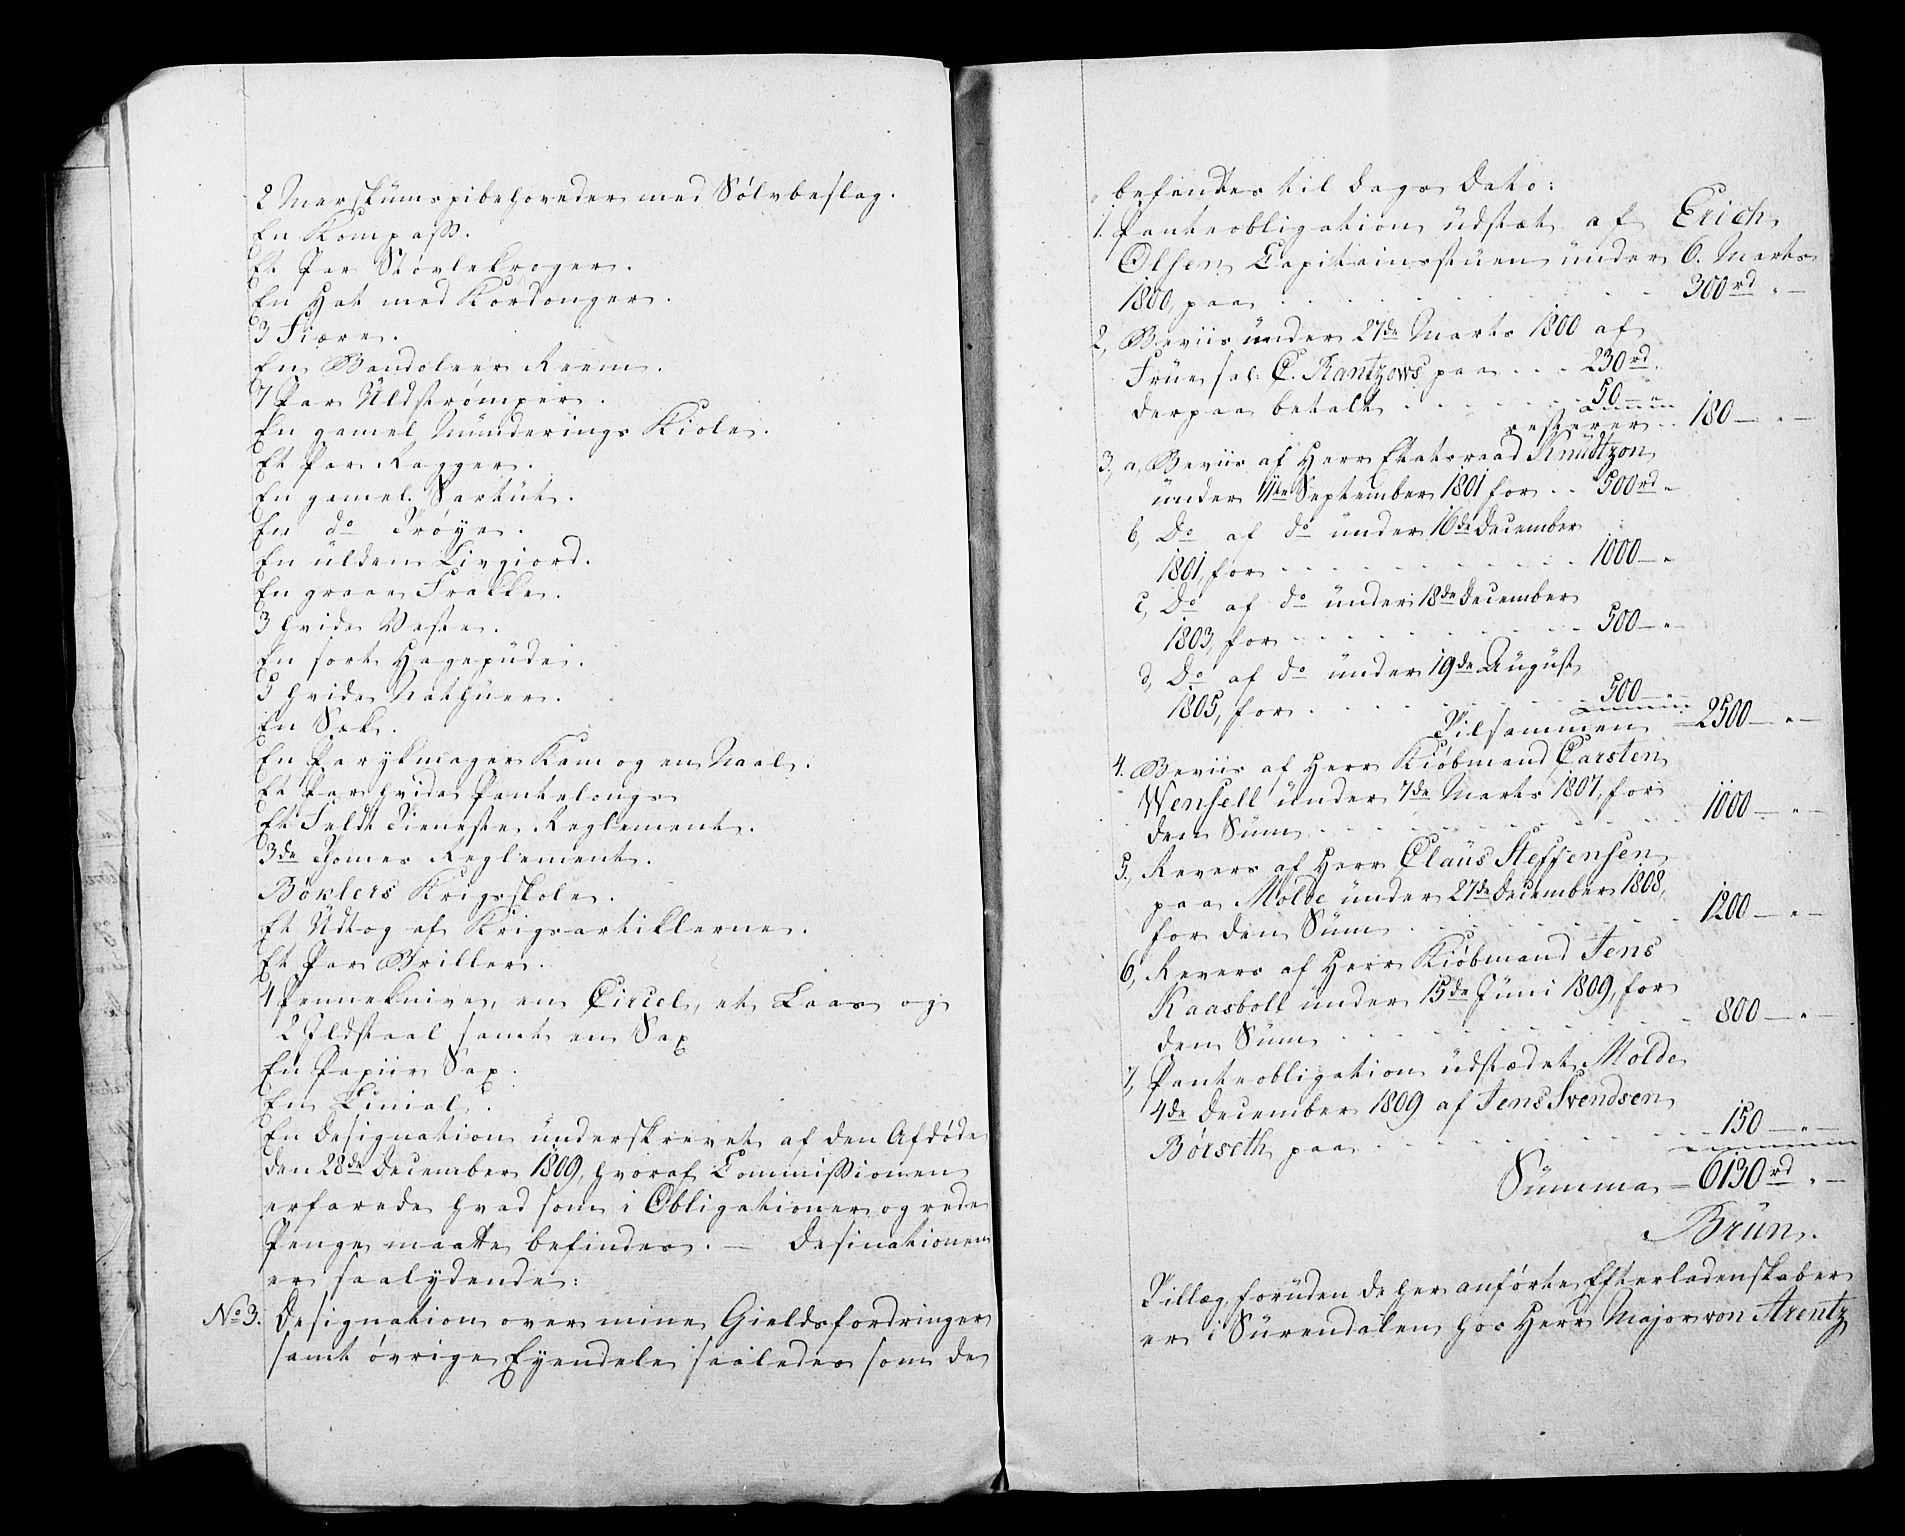 2 Merskumspibehoveder med Sølvbeslag.
En Kompass.
Et Par Støvlekroger.
En Hat med Kordonger.
3 Fiære.
En Bandoleer Reem.
7 Par Uldstrømper.
En gamel Munderings Kiole.
Et Par Ragger.
En gamel Sartut.
En do Trøye.
En ulden Livgiord.
En graae Frakke.
3 hvide Veste.
En sort Hagepude.
5 hvide Nathuer.
En Sæk.
En Parykmager Kam og en Naal.
Et Par hvide Pantelongs
Et Feldt Tieneste Reglement.
3de Thomes Reglement.
Böklers Krigsskole.
Et Udtog af Krigsartiklerne.
Et Par Briller.
4 Penneknive, en Circel, et Laas og
2 Ildstaal samt en Sax
En Papiir Sax.
En Linial.
En Designation underskrevet af den Afdøde
den 28de December 1809, hvoraf Commissionen
erfarede hvad som i Obligationer og rede
Penge maatte befindes. — Desinationen
er saalydende:
No 3. Designation over mine Gieldsfordringer
samt øvrige Eyendele saaledes som de
befindtes til Dags Dato:
1. Panteobligation udstæt af Erich
Olsen Capitainsstuen under 6. Marts
1800, paa . . . . 300rd " —
2, Beviis under 27de Marts 1800 af
Frue sal: C. Rantzows paa . . . 230rd.
derpaa betalt . . . . 50 — "
resterer . . 180 — " —
3, a, Beviis af Herr Etatsraad Knudtzon
under 11te September 1801 for . . 500rd "
b, Do af do under 16de December
1801, for . . . . 1000 — "
c, Do af do under 18de December
1803, for . . . . 500 — "
d, Do af do under 19de August
1805, for . . . . 500 — "
Tilsammen — 2500 — " —
4. Beviis af Herr Kiøbmand Carsten
Wensell under 7de Marts 1807, for
den Sum . . . . 1000 — " —
5., Revers af Herr Claus Steffensen
paa Molde under 27de December 1808,
for den Sum . . . . 1200 — " —
6, Revers af Herr Kiøbmand Jens
Kaasboll under 15de Juni 1809, for
den Sum . . . . 800 — " —
7, Panteobligation udstædet Molde
4de December 1809 af Jens Svendsen
Börseth paa . . . . 150 — " —
Summa — 6130rd " —
Brun.
Tillæg, foruden de her anførte Efterladenskaber
er i Surendalen hos Herr Major von Arentz